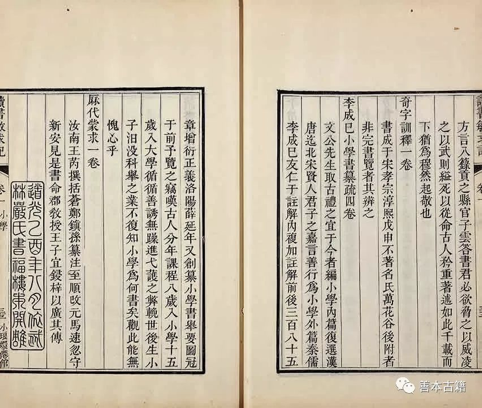 方言入籙貢之縣官子雲答書君必欲脅之以威凌
之以武則縊死以從命古人矜重著述如此千載而
下猶為程然起敬也
奇字訓釋一卷
書成于宋孝宗淳熙戊申不著名氏萬花谷後附者
非完書覽者其辨之
李成已小學書纂疏四卷
文公先生取古禮之宜于今者編小學內篇復選漢
唐迄北宋賢人君子之嘉言善行為小學外篇泰儒
李成已友仁于註解內復加註解前後三百八十五
章增衍正義洛陽薛延年又創纂小學書舉要圖冠
于前予覽之竊嘆古人分年課程八歲入小學十五
歲入大學循循善誘無躐進弋獲之弊輓世後生小
子汨沒科舉之業不復知小學為何書矣觀此能無
愧心乎
厤代蒙求一卷
汝南王芮撰括蒼鄭鎮孫纂注至順改元馬速忽守
新安見是書命郡教授王子宜鋟梓以廣其傳
道光乙酉年八月
林嚴氏書福樓開雕
讀書敏求記 卷一 小學
善本古籍